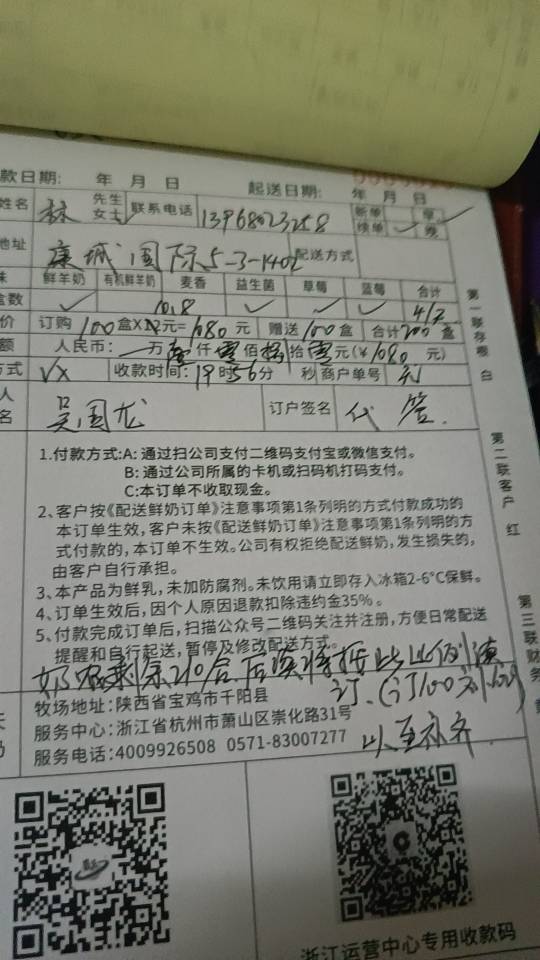 款日期: 年 月 日 起送日期: 年 月 日
姓名 林 先生 女士 联系电话 13968023258 新单 续单 早 晚
地址 康城国际5-3-1402 配送方式
味 鲜羊奶 有机鲜羊奶 麦香 益生菌 草莓 蓝莓 合计
盒数 10.8
价 订购100盒X 元=1080元 赠送100盒 合计200盒
额 人民币: 万壹仟零佰捌拾零元(¥1080 元)
方式 VX 收款时间: 19时56分 秒 商户单号 无
人
名 吴国龙 订户签名 代签
1.付款方式:A: 通过扫公司支付二维码支付宝或微信支付。
B: 通过公司所属的卡机或扫码机打码支付。
C:本订单不收取现金。
2、客户按《配送鲜奶订单》注意事项第1条列明的方式付款成功的
本订单生效,客户未按《配送鲜奶订单》注意事项第1条列明的方
式付款的,本订单不生效。公司有权拒绝配送鲜奶,发生损失的,
由客户自行承担。
3、本产品为鲜乳,未加防腐剂。未饮用请立即存入冰箱2-6℃保鲜。
4、订单生效后,因个人原因退款扣除违约金35%。
5、付款完成订单后,扫描公众号二维码关注并注册,方便日常配送
提醒和自行起送,暂停及修改配送方式。
奶 剩余210合后 按此比例续
订.(订100
牧场地址:陕西省宝鸡市千阳县
服务中心:浙江省杭州市萧山区崇化路31号
以至补齐
服务电话:4009926508 0571-83007277
浙江运营中心专用收款码
第一联存根 白
第二联客户 红
第三联财务 黄